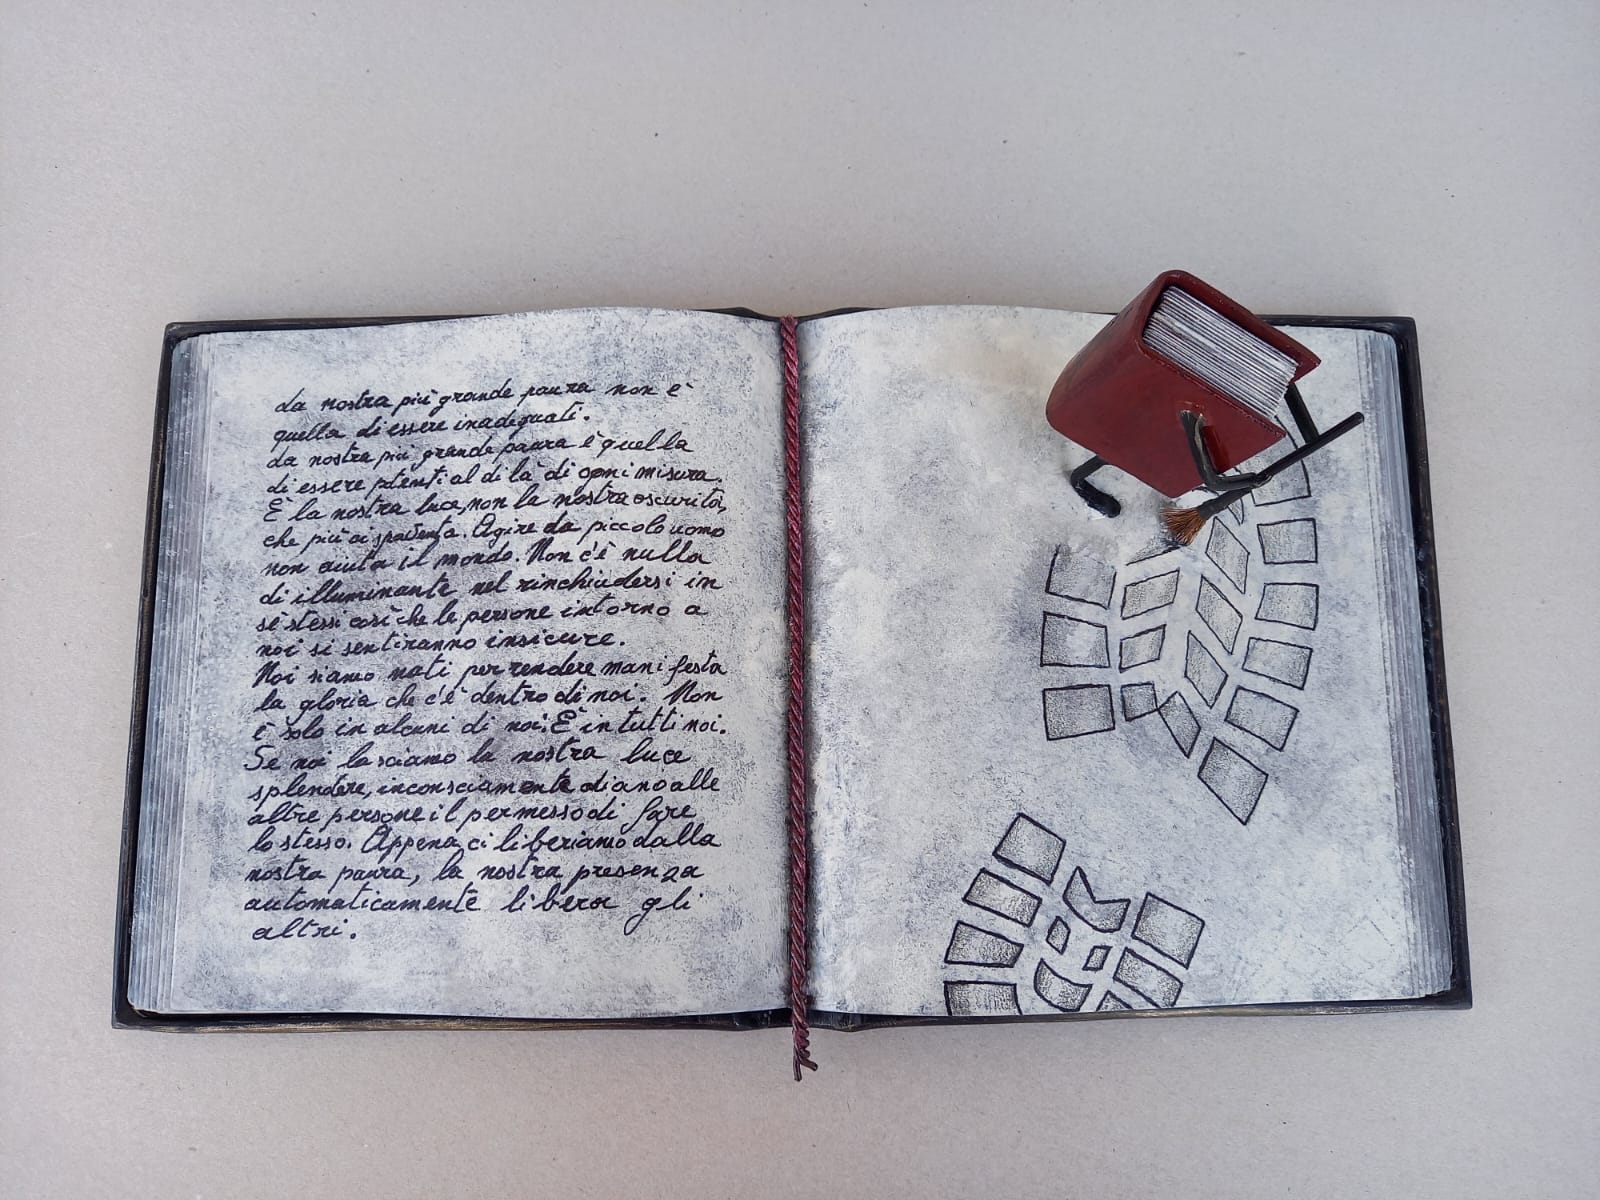 La nostra più grande paura non è
quella di essere inadeguati.
La nostra più grande paura è quella
di essere potenti al di là di ogni misura.
È la nostra luce, non la nostra oscurità,
che più ci spaventa. Agire da piccolo uomo
non aiuta il mondo. Non c'è nulla
di illuminante nel rinchiudersi in
sè stessi così che le persone intorno a
noi si sentiranno insicure.
Noi siamo nati per rendere manifesta
la gloria che c'è dentro di noi. Non
è solo in alcuni di noi. È in tutti noi.
Se noi lasciamo la nostra luce
splendere, inconsciamente diamo alle
altre persone il permesso di fare
lo stesso. Appena ci liberiamo dalla
nostra paura, la nostra presenza
automaticamente libera gli
altri.